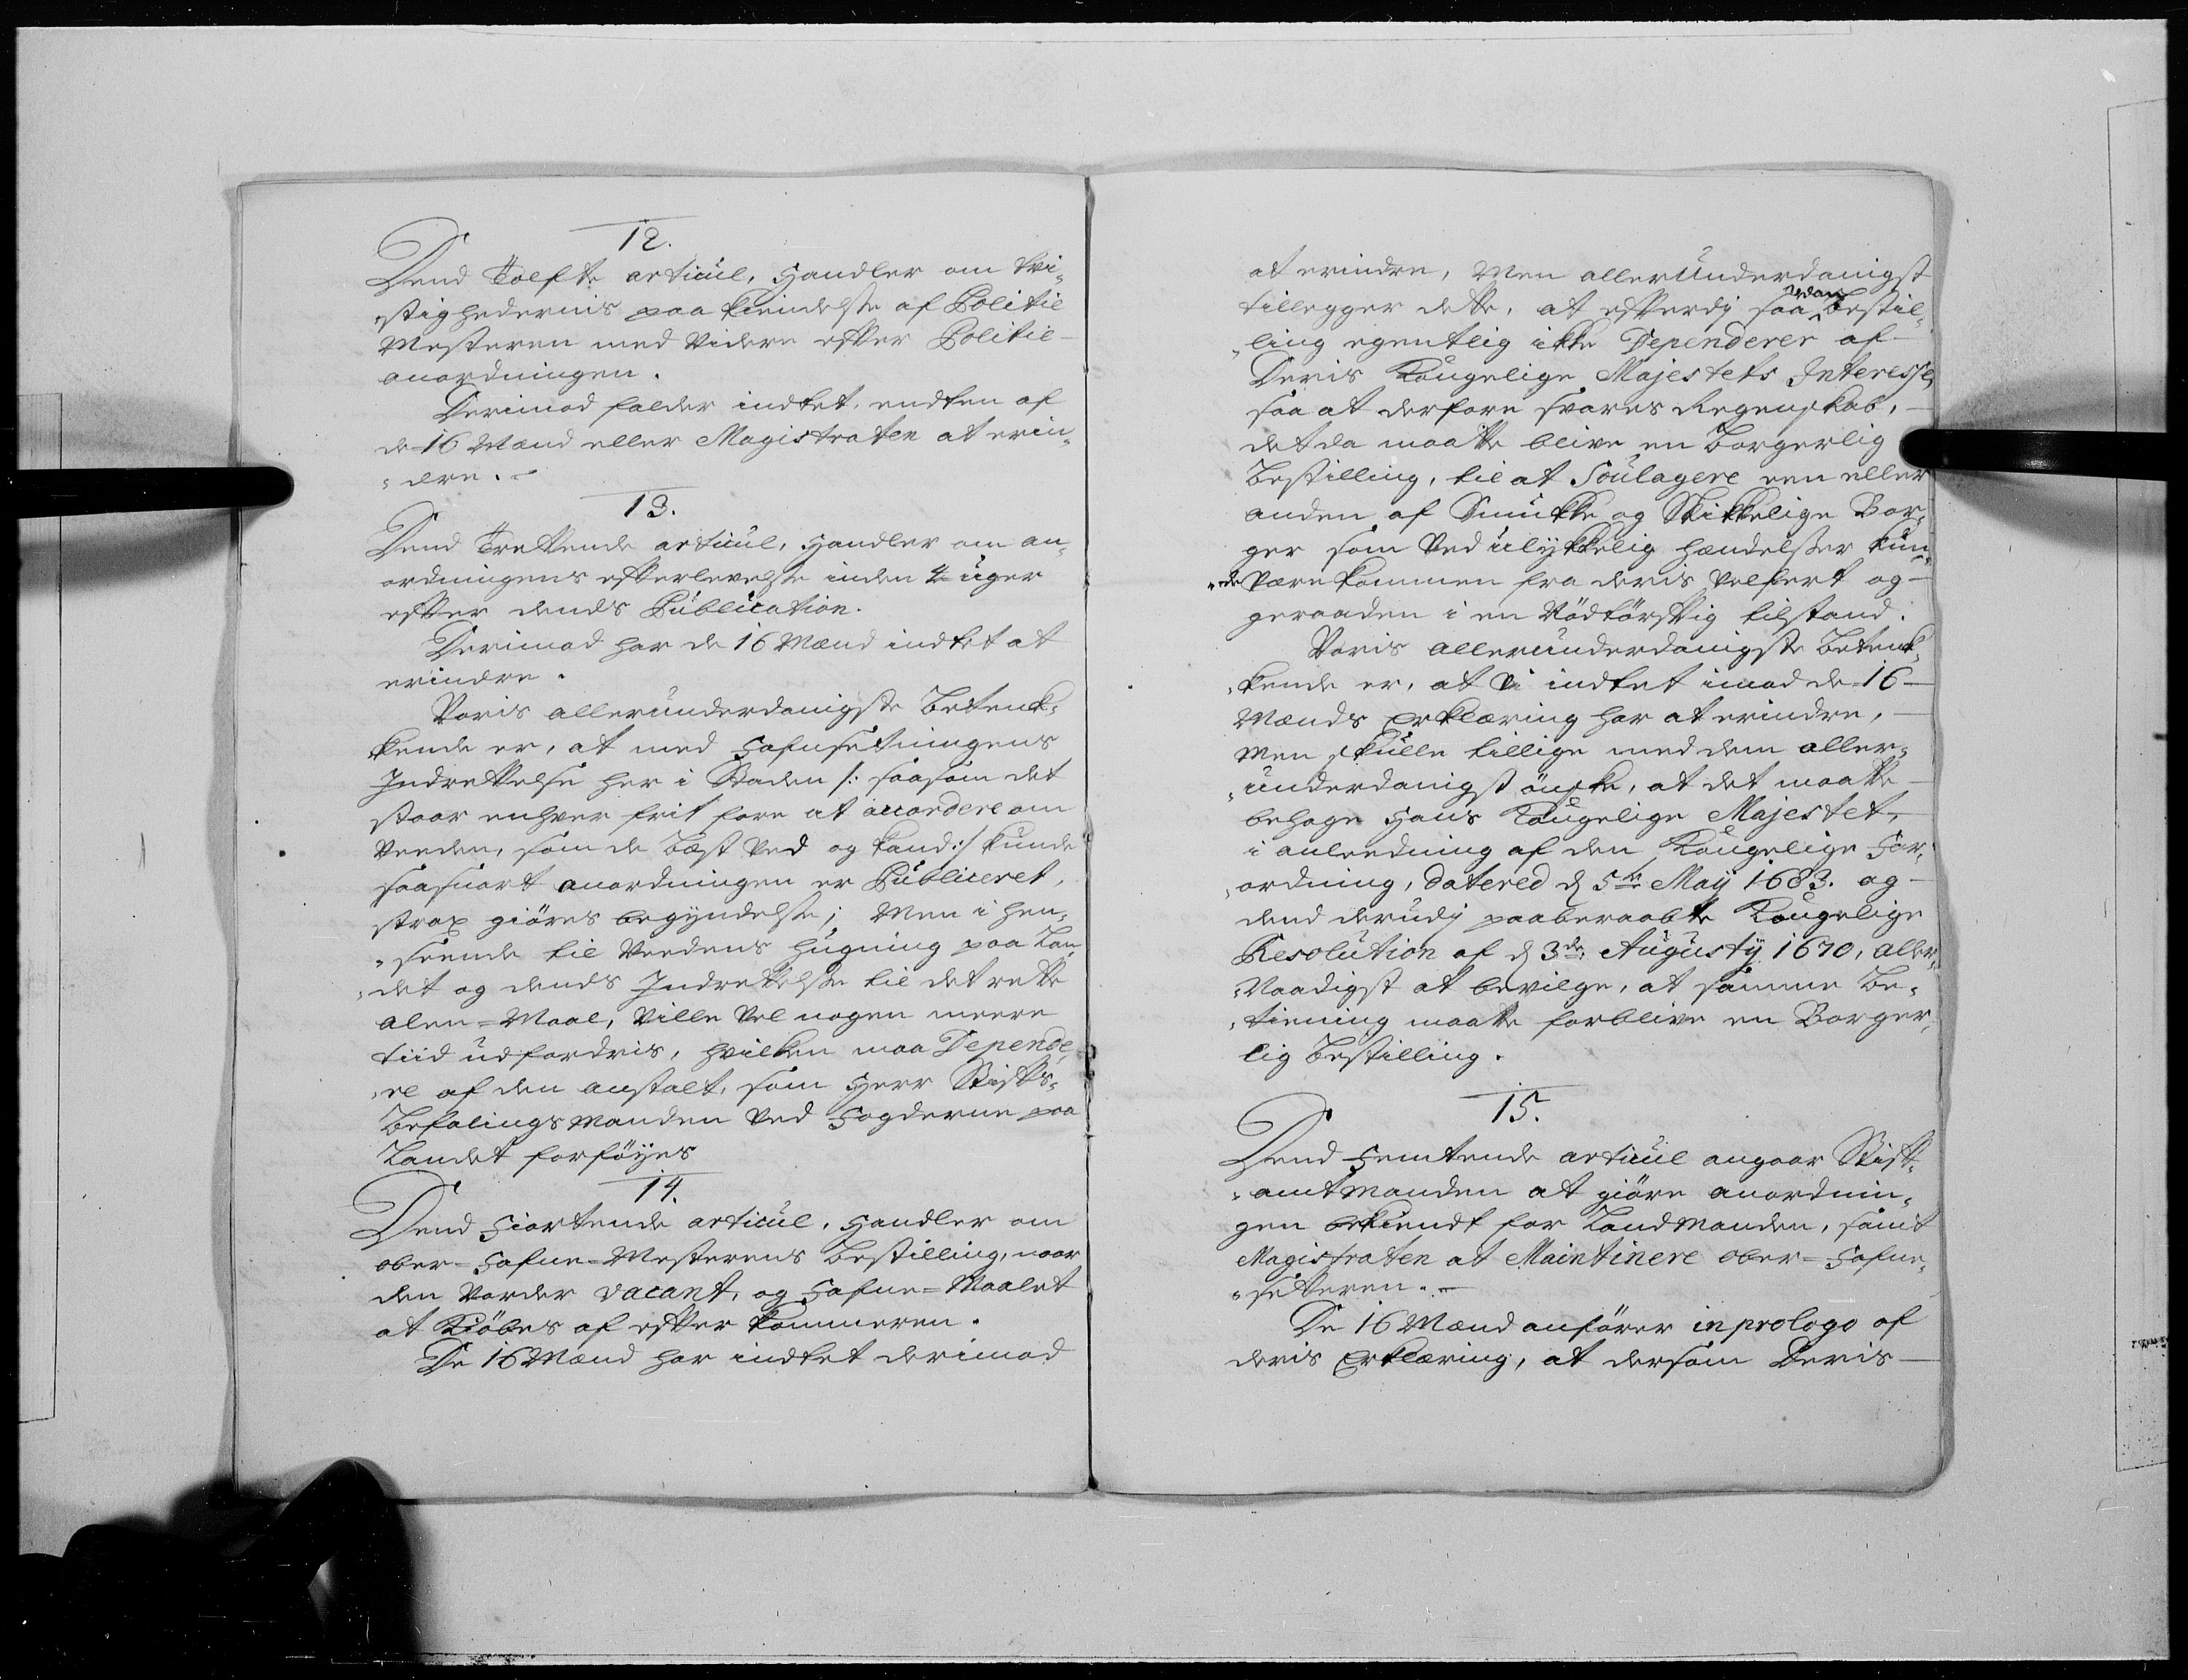 12.
Dend Tolfte articul, Handler om tvi„
„stighedernis paa kiendelse af Politie
Mesteren med videre efter Politie-
anordningen.
Derimod falder indtet, endten af
de 16 Mænd eller Magistraten at erin„
„dre. -
13.
Dend Trettende articul, Handler om an„
ordningens efterlevelse inden 4 uger
efter dends Publication.
Derimod har de 16 Mænd indtet at
erindre.
Voris allerunderdanigste Betenk„
kende er, at med Hafnsetningens
Indrettelse her i Staden /: saasom det
staar enhver frit fore at accordere om
Veeden, som de best ved og kand :/ kunde
saasnart anordningen er Publiceret,
strax giöres begyndelse; Men i hen„
„seende til Veedens hugning paa Lan„
„det og dends Indrettelse til det rette
alen-Maal, ville vel nogen meere
tiid udfordris, hvilken maa Depende„
„re af den anstalt, som Herr Stifts„
Befalings Manden ved Fogderne paa
Landet forföyes
14.
Dend Fiortende articul, Handler om
ober-Hafne-Mesterens Bestilling, naar
den vorder vacant, og Hafne-Maalet
at Kiöbes af efter kommeren.
De 16 Mænd har indtet derimod
at erindre, Men allerunderdanigst
tillegger dette, at efterdj saa
dan
Bestil„
„ling egentlig ikke Dependerer af
Deris Kongelige Majestets Interesse,
saa at derfore svares Regenskab,
det da maatte blive en Borgerlig
Bestilling, til at Soulagere een eller
anden af Smukke og Skikkelige Bor„
ger som ved ulykkelig hændelser kun„
„de være kommen fra deris velfert og
geraaden i en Nödtörftig tilstand.
Voris allerunderdanigste Betenk„
„kende er, at vi indtet imod de 16
Mænds Erklæring har at erindre,
Men skulle tillige med dem aller„
„underdanigst önske, at det maatte
behage Hans Kongelige Majestet,
i anleedning af den Kongelige For„
„ordning, Datered d 5te Maij 1683. og
dend derudj paaberaabte Kongelige
Resolution af d 3de Augustij 1670, aller„
„Naadigst at bevilge, at samme Be„
„tiening maatte forblive en Borger„
lig Bestilling.
15.
Dend Femtende articul angaar Stift„
„amtmanden at giöre anordnin„
gen bekiendt for Landmanden, samt
Magistraten at Maintinere ober-Hafne„
„setteren. -
De 16 Mænd anförer in prologo af
deris Erklæring, at dersom Deris